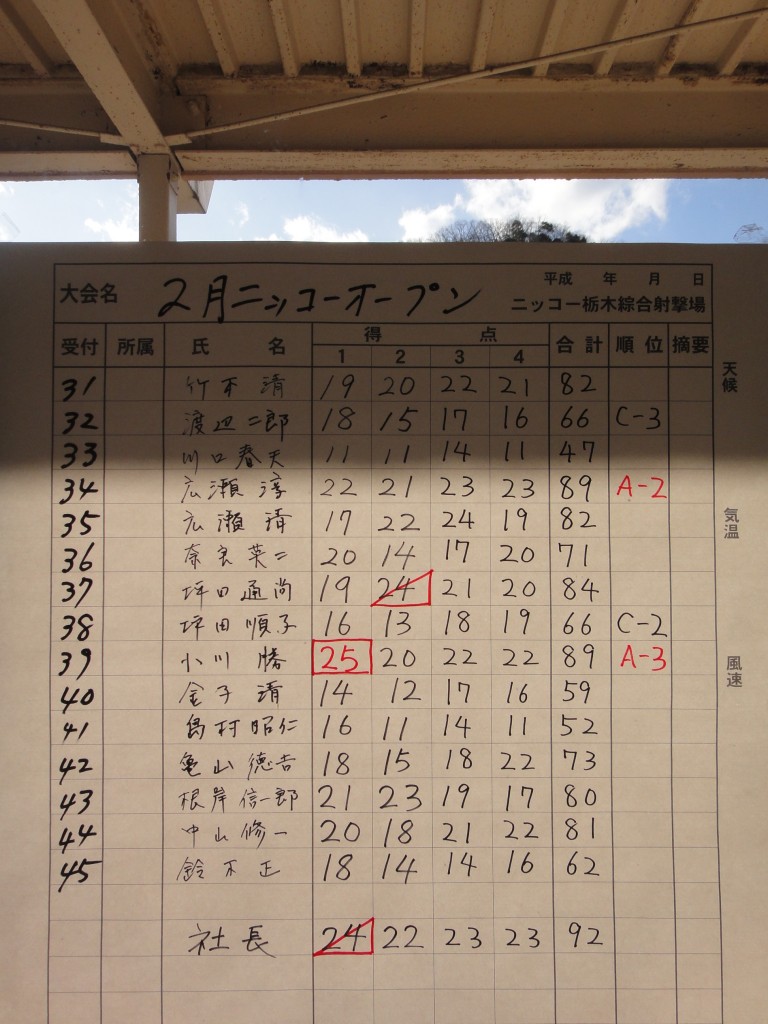 大会名 2月ニッコーオープン 平成 年 月 日
ニッコー栃木綜合射撃場
受付 所属 氏 名 得 点 合計 順位 摘要
1 2 3 4
31 竹本 清 19 20 22 21 82
32 渡辺二郎 18 15 17 16 66 C-3
33 川口春夫 11 11 14 11 47
34 広瀬 淳 22 21 23 23 89 A-2
35 広瀬 清 17 22 24 19 82
36 奈良英二 20 14 17 20 71
37 坪田通尚 19 24 21 20 84
38 坪田順子 16 13 18 19 66 C-2
39 小川 勝 25 20 22 22 89 A-3
40 金子 清 14 12 17 16 59
41 島村昭仁 16 11 14 11 52
42 亀山徳吉 18 15 18 22 73
43 根岸信一郎 21 23 19 17 80
44 中山修一 20 18 21 22 81
45 鈴木 正 18 14 14 16 62
社長 24 22 23 23 92
天候
気温
風速